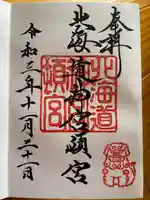 奉拝
北海道神宮頓宮
北海道
頓宮
令和三年十一月二十一日